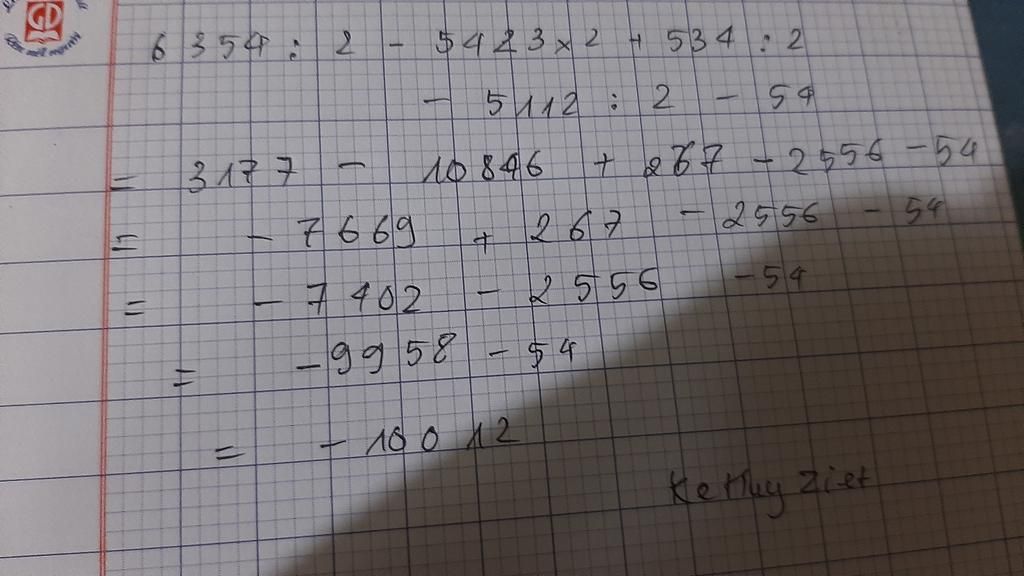 GD
6354 : 2 - 5423 x 2 + 534 : 2
- 5112 : 2 - 54
= 3177 - 10846 + 267 - 2556 - 54
= - 7669 + 267 - 2556 - 54
= - 7402 - 2556 - 54
= - 9958 - 54
= - 10012